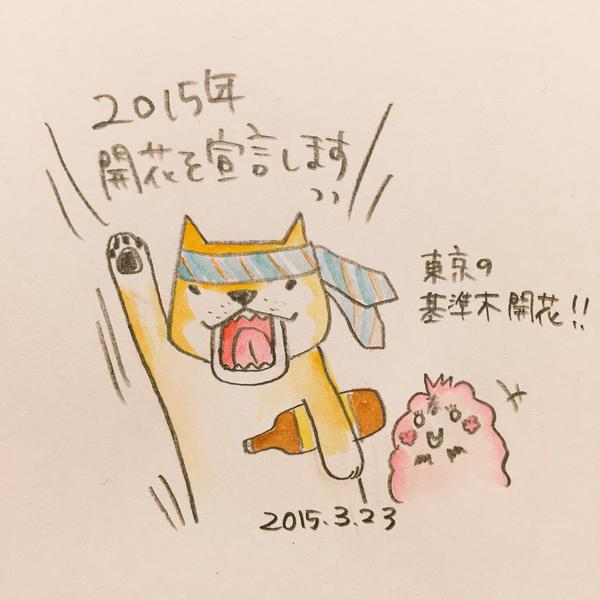 2015年
開花を宣言します
東京の
基準木開花!!
春
2015.3.23